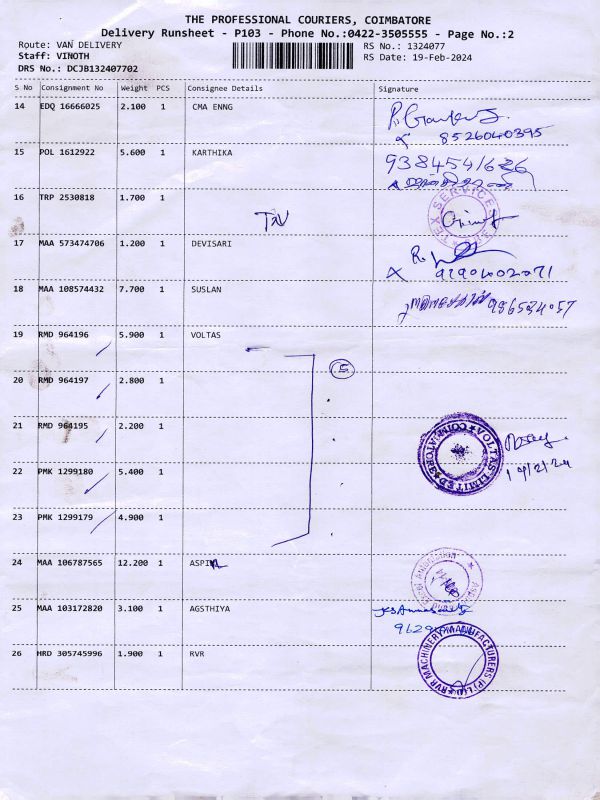 THE PROFESSIONAL COURIERS, COIMBATORE
Delivery Runsheet - P103 - Phone No.:0422-3505555 - Page No.:2
Route: VAN DELIVERY RS No.: 1324077
Staff: VINOTH RS Date: 19-Feb-2024
DRS No.: DCJB132407702
S No Consignment No Weight PCS Consignee Details Signature
14 EDQ 16666025 2.100 1 CMA ENNG
8526040395
15 POL 1612922 5.600 1 KARTHIKA
9384541626
16 TRP 2530818 1.700 1
TEX SERVICE
17 MAA 573474706 1.200 1 DEVISARI
18 MAA 108574432 7.700 1 SUSLAN
19 RMD 964196 5.900 1 VOLTAS
5
20 RMD 964197 2.800 1
21 RMD 964195 2.200 1
VOLTAS LIMITED COIMBATORE
22 PMK 1299180 5.400 1
23 PMK 1299179 4.900 1
24 MAA 106787565 12.200 1 ASPIN
25 MAA 103172820 3.100 1 AGSTHIYA
26 HRD 305745996 1.900 1 RVR
RVR MACHINERY MANUFACTURERS (P) Ltd